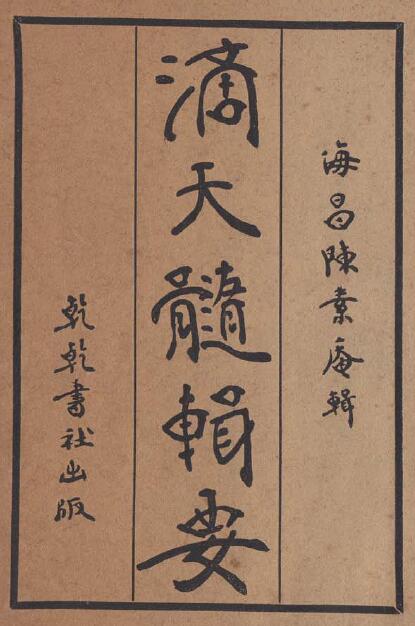 海昌陳素庵輯
滴天髓輯要
乾乾書社出版